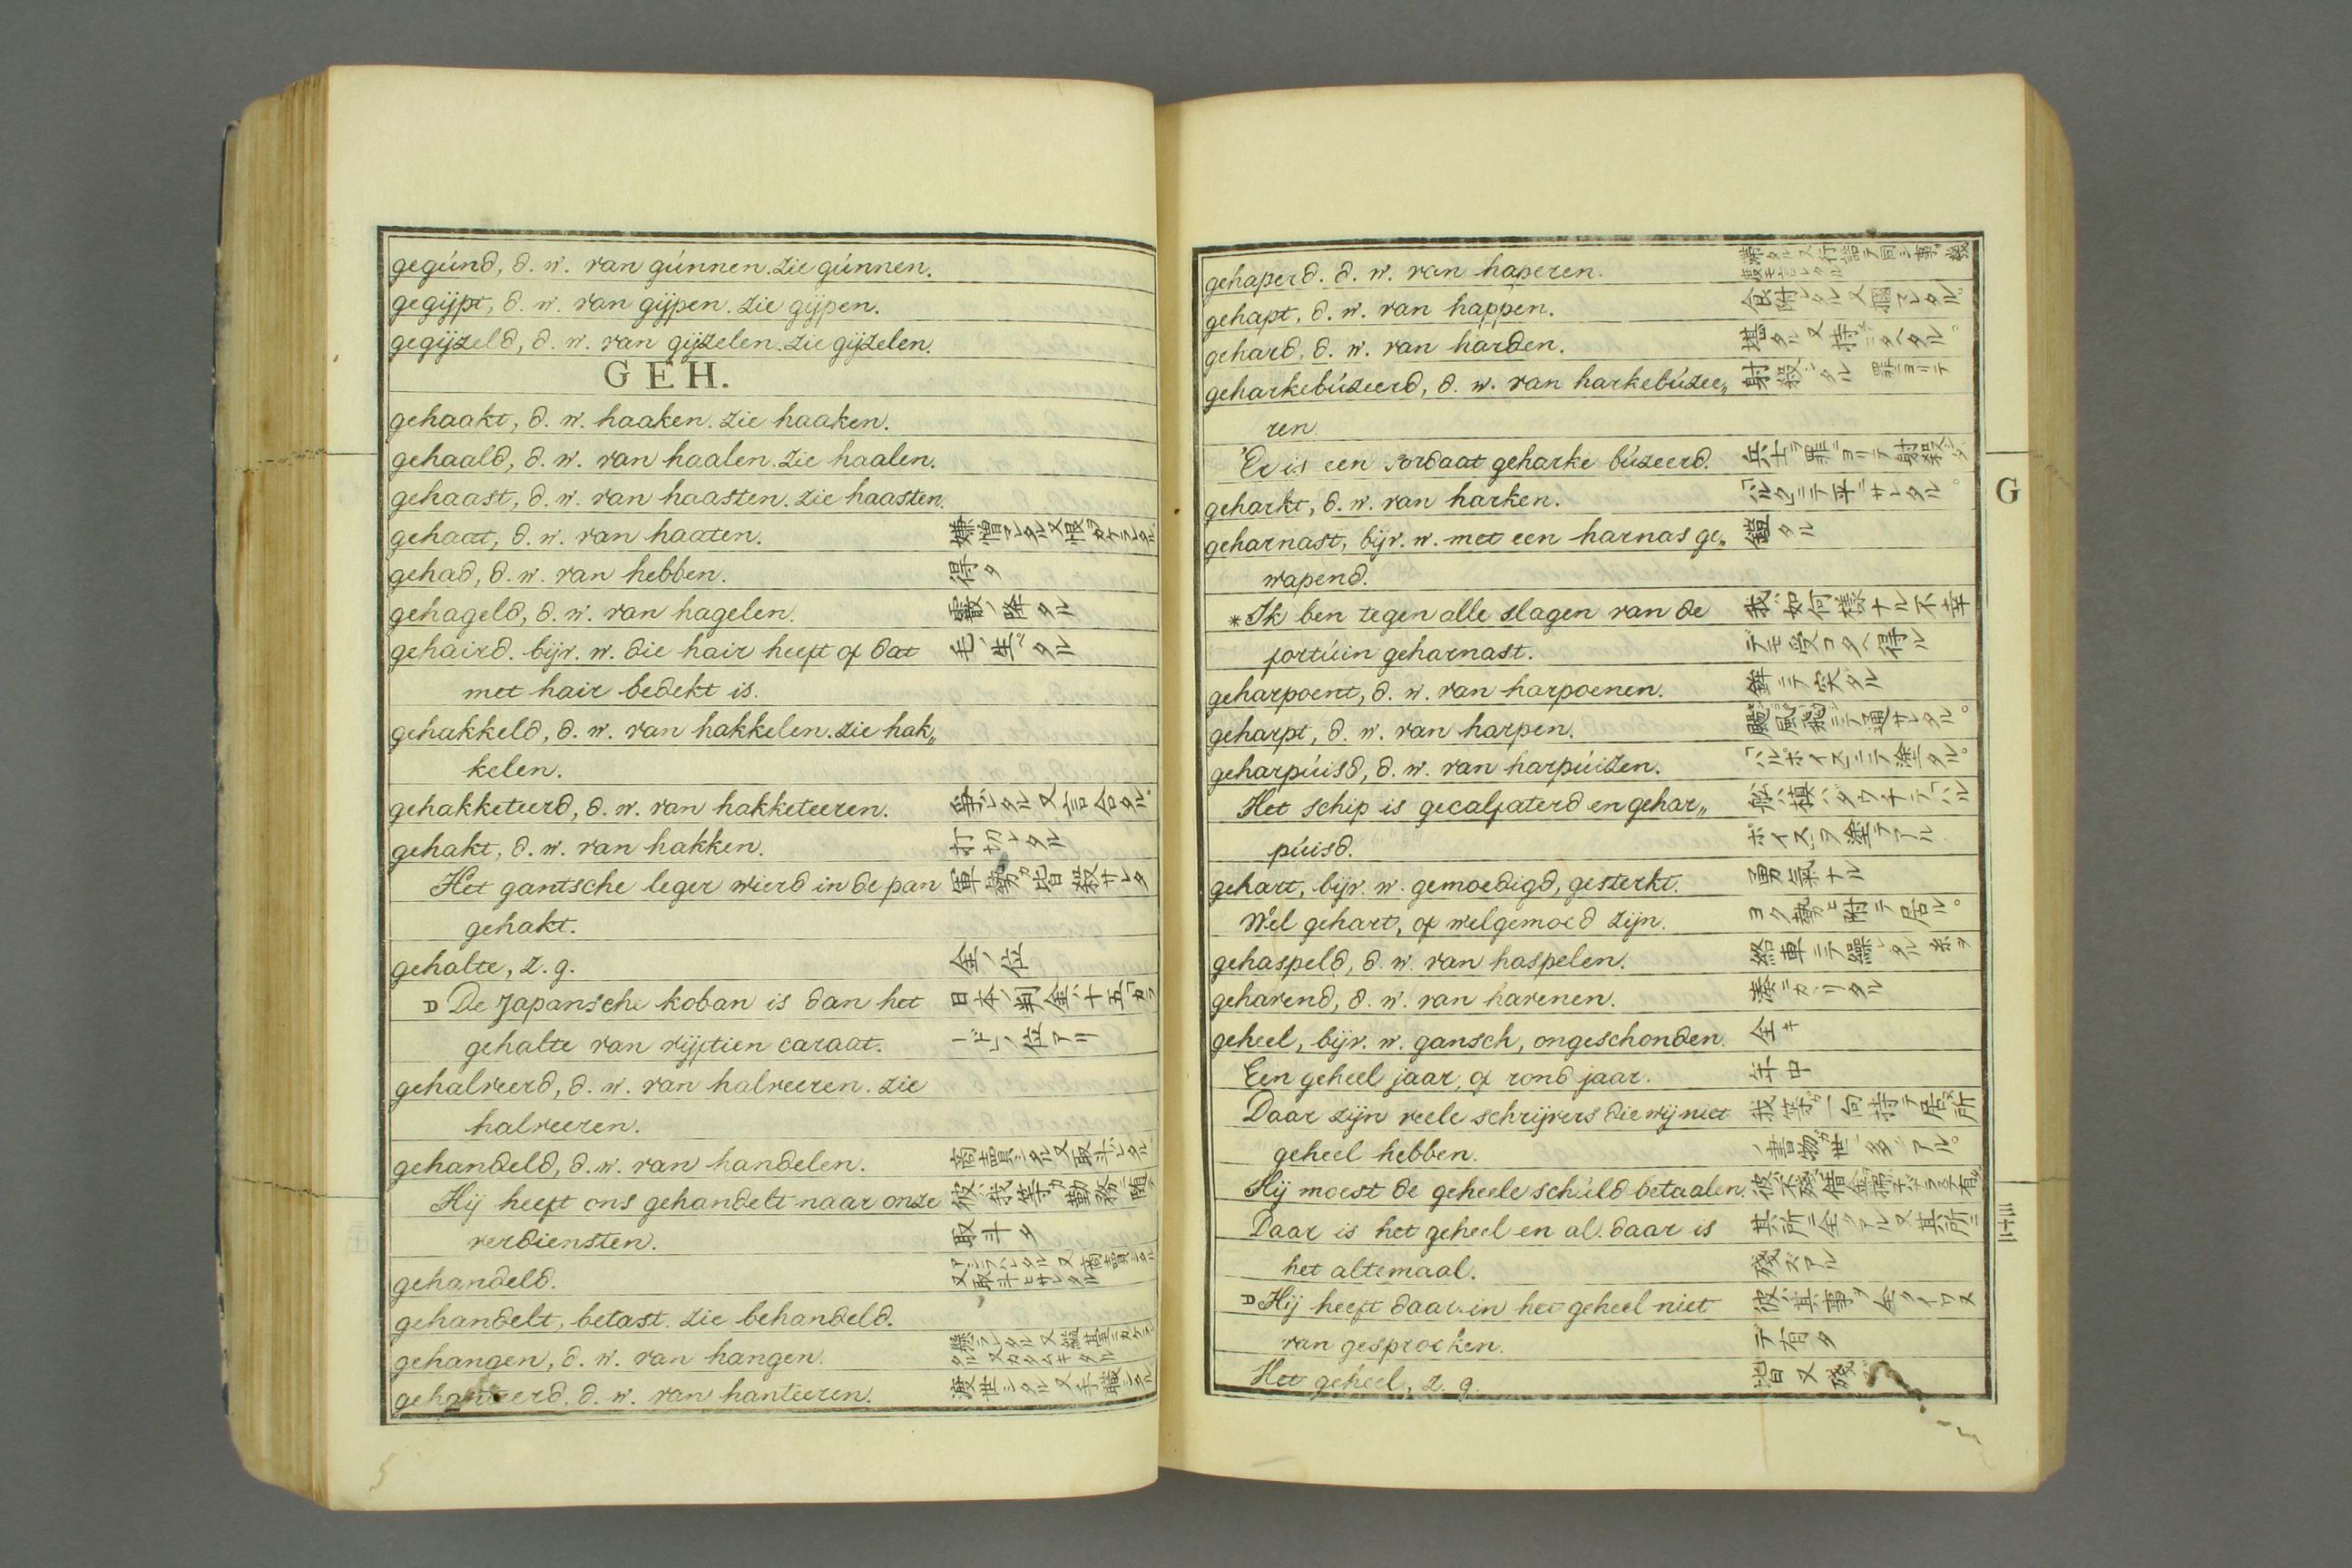 gegúnd, d. w. van gúnnen. zie gúnnen.
gegijpt, d. w. van gijpen. zie gijpen.
gegijzeld, d. w. van gijzelen. zie gijzelen.
GEH.
gehaakt, d. w. haaken. zie haaken.
gehaald, d. w. van haalen. zie haalen.
gehaast, d. w. van haasten. zie haasten.
gehaat, d. w. van haaten. 嫌憎
gehad, d. w. van hebben. 得タ
gehageld, d. w. van hagelen. 霰ノ降タル
gehaird. bijv. w. die hair heeft of dat 毛ノ生ヘタル
met hair bedekt is.
gehakkeld, d. w. van hakkelen. zie hak„
kelen.
gehakketeerd, d. w. van hakketeeren. 争レタル又言合タル。
gehakt, d. w. van hakken. 打切レタル
Het gantsche leger wierd in de pan 軍勢ガ皆殺サレタ
gehakt.
gehalte, z. g. 金ノ位
D De Japansche koban is dan het 日本ノ判金ハ十五「カラ
gehalte van vijftien caraat. ートノ位アリ
gehalveerd, d. w. van halveeren. zie
halveeren.
gehandeld, d. w. van handelen. 商買シタル又取斗レタル
Hij heeft ons gehandelt naar onze 彼ハ我等ガ勤務ニ随テ
verdiensten. 取斗タ
gehandeld. 又取斗ヒサレタル
gehandelt, betast. zie behandeld.
gehangen, d. w. van hangen.
gehanteerd, d. w. van hanteeren. 渡世シタル又手職シタル
gehaperd. d. w. van haperen.
gehapt, d. w. van happen. 食附レタル又
gehard, d. w. van harden. 堪タル又持
geharkebúzeerd, d. w. van harkebúzee„ 射殺シタル 罪ニヨリテ
ren.
Er is een sordaat geharke búzeerd. 兵士ヲ罪ニヨリテ射殺シタ
geharkt, d. w. van harken. 「ハルク」ニテ平ニサレタル。
geharnast, bijv. w. met een harnas ge„ 鎧タル
wapend.
* Ik ben tegen alle slagen van de 我ハ如何樣ナル不幸
fortúin geharnast. デモ受コタヘ得ル
geharpoent, d. w. van harpoenen. 鉾ニテ突タル
geharpt, d. w. van harpen. 颺風 ニテ通サレタル。
geharpúisd, d. w. van harpúizen. 「ハルポイス」ニテ塗タル。
Het schip is gecalfaterd en gehar„ 舩ハ槙ハダウチテ「ハル
púisd. ポイス」ヲ塗テアル
gehart, bijv. w. gemoedigd, gesterkt. 勇氣ナル
Wel gehart, of welgemoed zijn. ヨク勢ヒ附テ居ル。
gehaspeld, d. w. van haspelen. 絡車ニテ繰レタル 糸ヲ
gehavend, d. w. van havenen. 湊ニカヽリタル
geheel, bijv. w. gansch, ongeschonden. 全キ
Een geheel jaar, of rond jaar. 年中
Daar zijn veele schrijvers die wij niet 我等ガ一向持テ居ヌ所
geheel hebben. ノ書物ガ世ニ多クアル。
Hij moest de geheele schúld betaalen. 彼ハ不殘借金
Daar is het geheel en al. daar is 其所ニ全クアル又其所ニ
het altemaal. 殘ズアル
D Hij heeft daar in het geheel niet 彼ハ其事ヲ全クイワヌ
van gesprocken. テ有タ
Het geheel, z. g. 皆又殘ズ
G